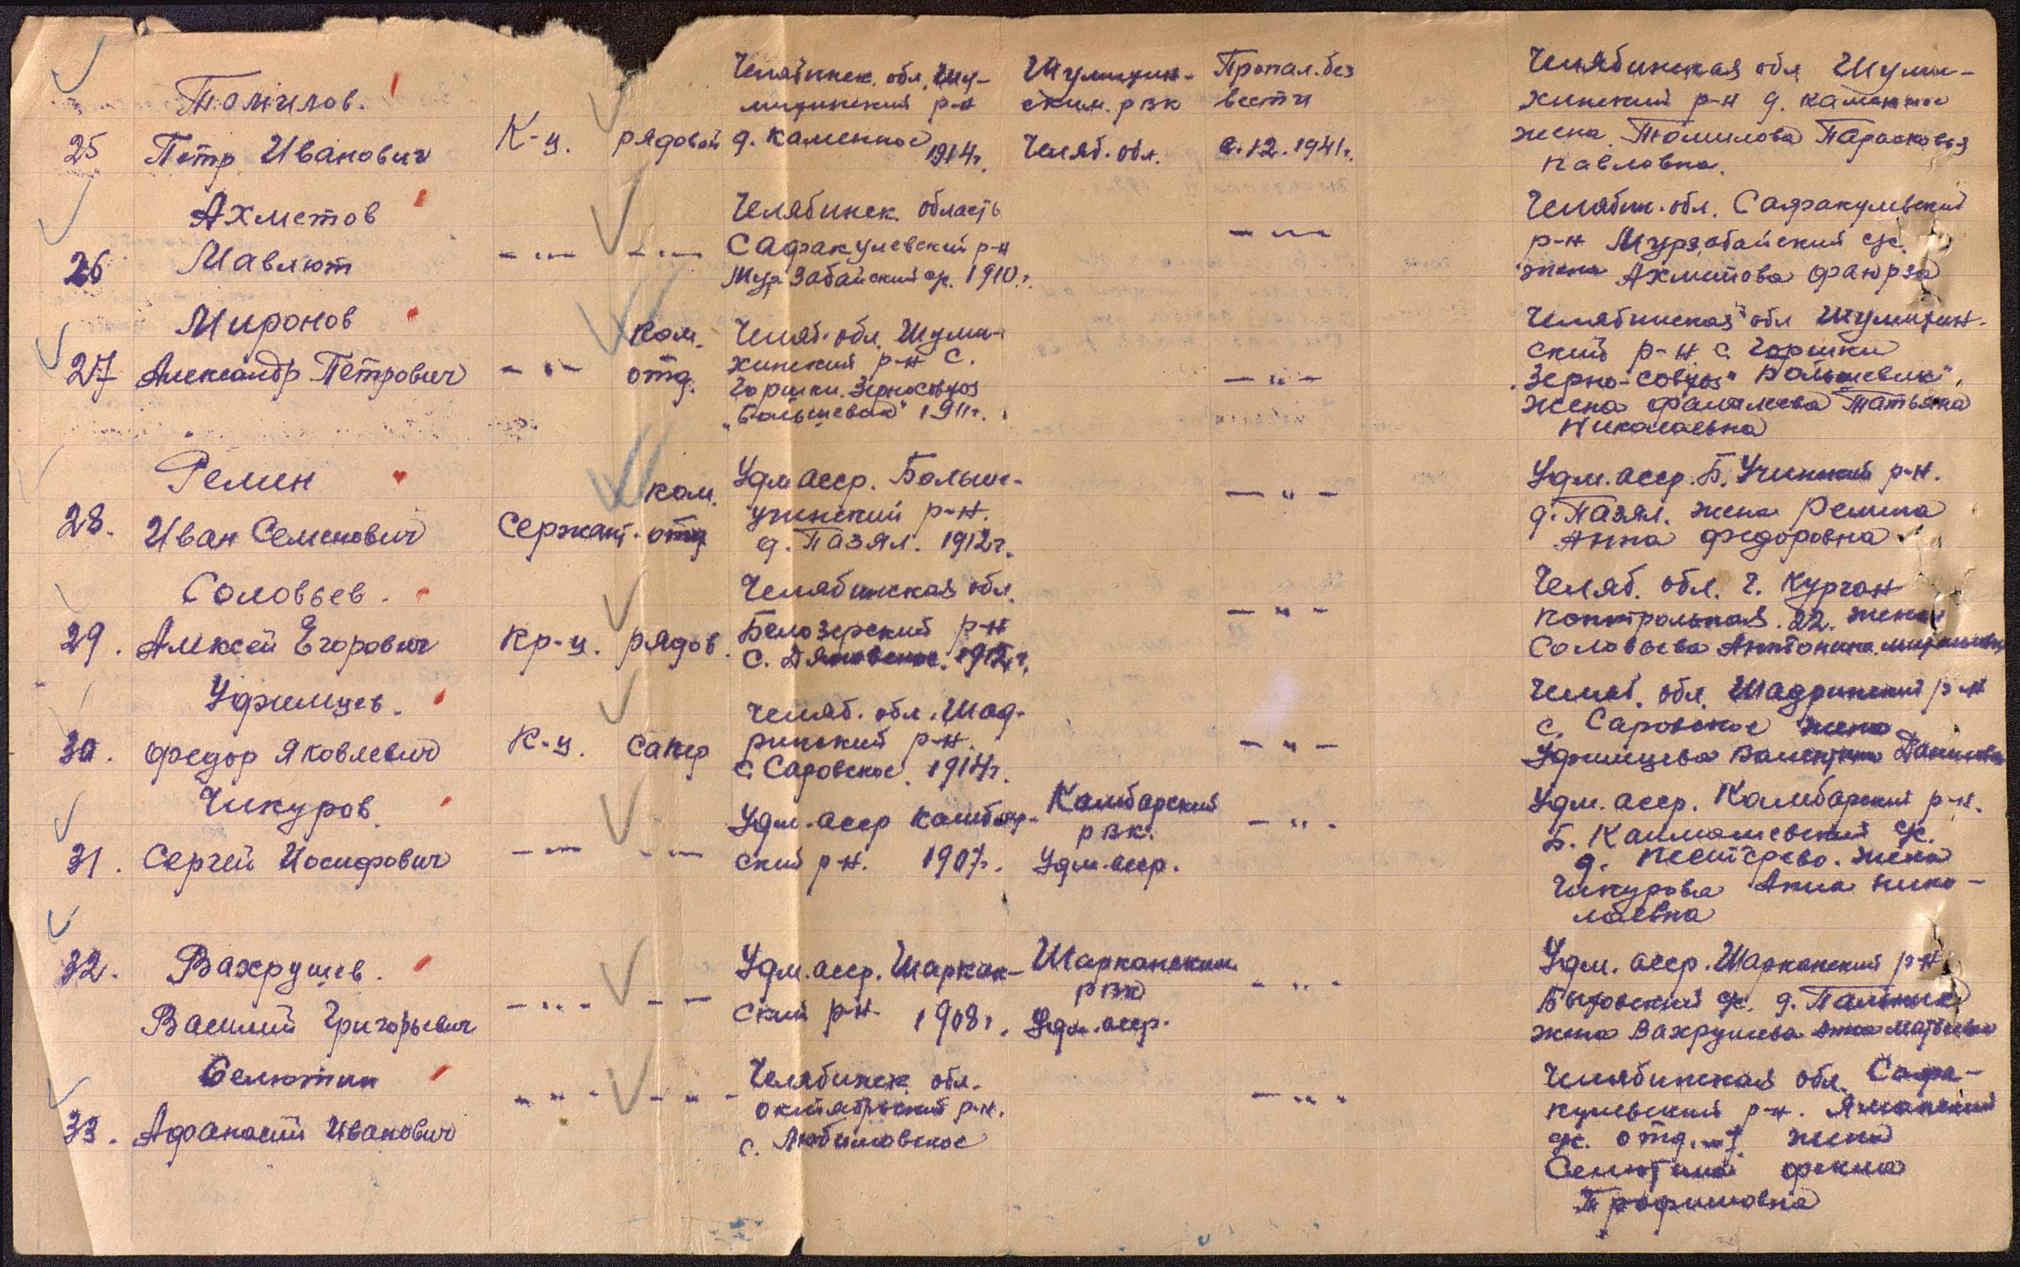 Томилов.
25 Петр Иванович
К-ц.
рядовой
Челябинск. обл. Шу-
михинский р-н
д. Каменное
1914г.
Шумихин-
ским. рвк
Челяб. обл.
Пропал. без
вести
с. 12. 1941г.
Челябинская обл Шуми-
хинский р-н д. Каменное
жена. Томилова Парасковья
Павловна.
Ахметов
26 Мавлют
- „ -
- „ -
Челябинск. область
Сафакулевский р-н
Мурзабайский с/с. 1910.г.
- „ -
Челябин. обл. Сафакулевский
р-н Мурзабайский с/с.
жена Ахметова Фаюрза
Миронов
27 Александр Петрович
- „ -
Ком.
отд.
Челяб. обл. Шуми-
хинский р-н с.
Горшки. Зерносовхоз
„Большевик" 1911г.
- „ -
Челябинская обл Шумихин-
ский р-н с. Горшки
Зерно-совхоз „Большевик".
жена Фалалеева Татьяна
Николаевна
Ремин
28. Иван Семенович
Сержант.
ком.
отд
Удм асср. Больше-
учинский р-н.
д. Пазял. 1912г.
- „ -
Удм. асср. Б. Учинский р-н.
д. Пазял. жена Ремина
Анна Федоровна
Соловьев.
29. Алексей Егорович
Кр-ц.
рядов.
Челябинская обл.
Белозерский р-н
с. 1912г.
- „ -
Челяб. обл. г. Курган
Контрольная. 22. жена
Соловьева Антонина
Уфимцев.
30. Федор Яковлевич
К-ц.
сапер
Челяб. обл. Шад-
ринский р-н.
с. Саровское. 1914г.
- „ -
Челяб. обл. Шадринский р-н
с. Саровское жена
Уфимцева Валентина
Чикуров.
31. Сергей Иосифович
- „ -
- „ -
Удм. асср Камбар-
ский р-н. 1907г.
Камбарский
рвк.
Удм. асср.
- „ -
Удм. асср. Камбарский р-н.
Б. Калмашевский с/с.
д. жена
Чикурова Анна Нико-
лаевна
32. Вахрушев.
Василий Григорьевич
- „ -
- „ -
Удм. асср. Шаркан-
ский р-н. 1908г.
Шарканским
рвк
Удм. асср.
- „ -
Удм. асср. Шарканский р-н
Быговский с/с. д. Пальник
жена Вахрушева Анна Матвеевна
Селютин
33. Афанасий Иванович
- „ -
- „ -
Челябинск обл.
октябрьский р-н.
с. Любимовское
- „ -
Челябинская обл. Сафа-
кулевский р-н.
с/с. отд. жена
Селютина Фекла
Трофимовна